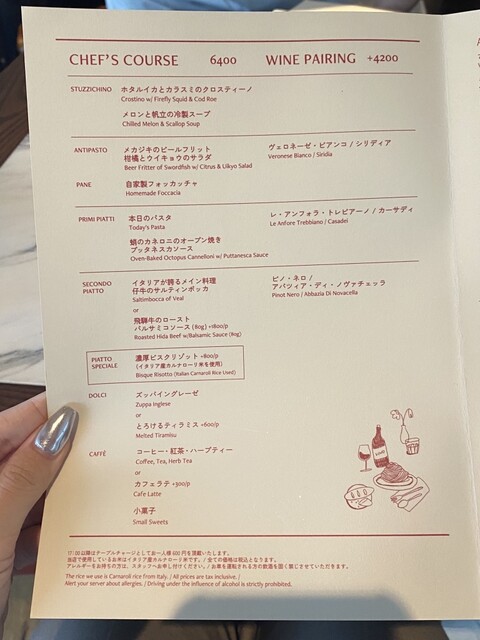 CHEF'S COURSE 6400 WINE PAIRING +4200
STUZZICHINO
ホタルイカとカラスミのクロスティーノ
Crostino w/ Firefly Squid & Cod Roe
メロンと帆立の冷製スープ
Chilled Melon & Scallop Soup
ANTIPASTO
メカジキのビールフリット
柑橘とウイキョウのサラダ
Beer Fritter of Swordfish w/ Citrus & Uikyo Salad
ヴェロネーゼ・ビアンコ / シリディア
Veronese Bianco / Siridia
PANE
自家製フォッカッチャ
Homemade Foccacia
PRIMI PIATTI
本日のパスタ
Today's Pasta
レ・アンフォラ・トレビアーノ / カーサデイ
Le Anfore Trebbiano / Casadei
蛸のカネロニのオーブン焼き
プッタネスカソース
Oven-Baked Octopus Cannelloni w/ Puttanesca Sauce
SECONDO
PIATTO
イタリアが誇るメイン料理
仔牛のサルティンボッカ
Saltimbocca of Veal
ピノ・ネロ /
アバツィア・ディ・ノヴァチェッラ
Pinot Nero / Abbazia Di Novacella
or
飛騨牛のロースト
バルサミコソース (80g) +1800/p
Roasted Hida Beef w/Balsamic Sauce (80g)
PIATTO
SPECIALE
濃厚ビスクリゾット +800/p
(イタリア産カルナローリ米を使用)
Bisque Risotto (Italian Carnaroli Rice Used)
DOLCI
ズッパイングレーゼ
Zuppa Inglese
or
とろけるティラミス +600/p
Melted Tiramisu
CAFFÉ
コーヒー・紅茶・ハーブティー
Coffee, Tea, Herb Tea
or
カフェラテ +300/p
Cafe Latte
小菓子
Small Sweets
17:00以降はテーブルチャージとしてお一人様 600円を頂戴いたします。
当店で使用しているお米はイタリア産カルナローリ米です。 / 全ての価格は税込となります。
アレルギーをお持ちの方は、スタッフへお申し付けください。 / お車を運転される方の飲酒を固く禁じさせていただきます。
The rice we use is Carnaroli rice from Italy. / All prices are tax inclusive. /
Alert your server about allergies. / Driving under the influence of alcohol is strictly prohibited.